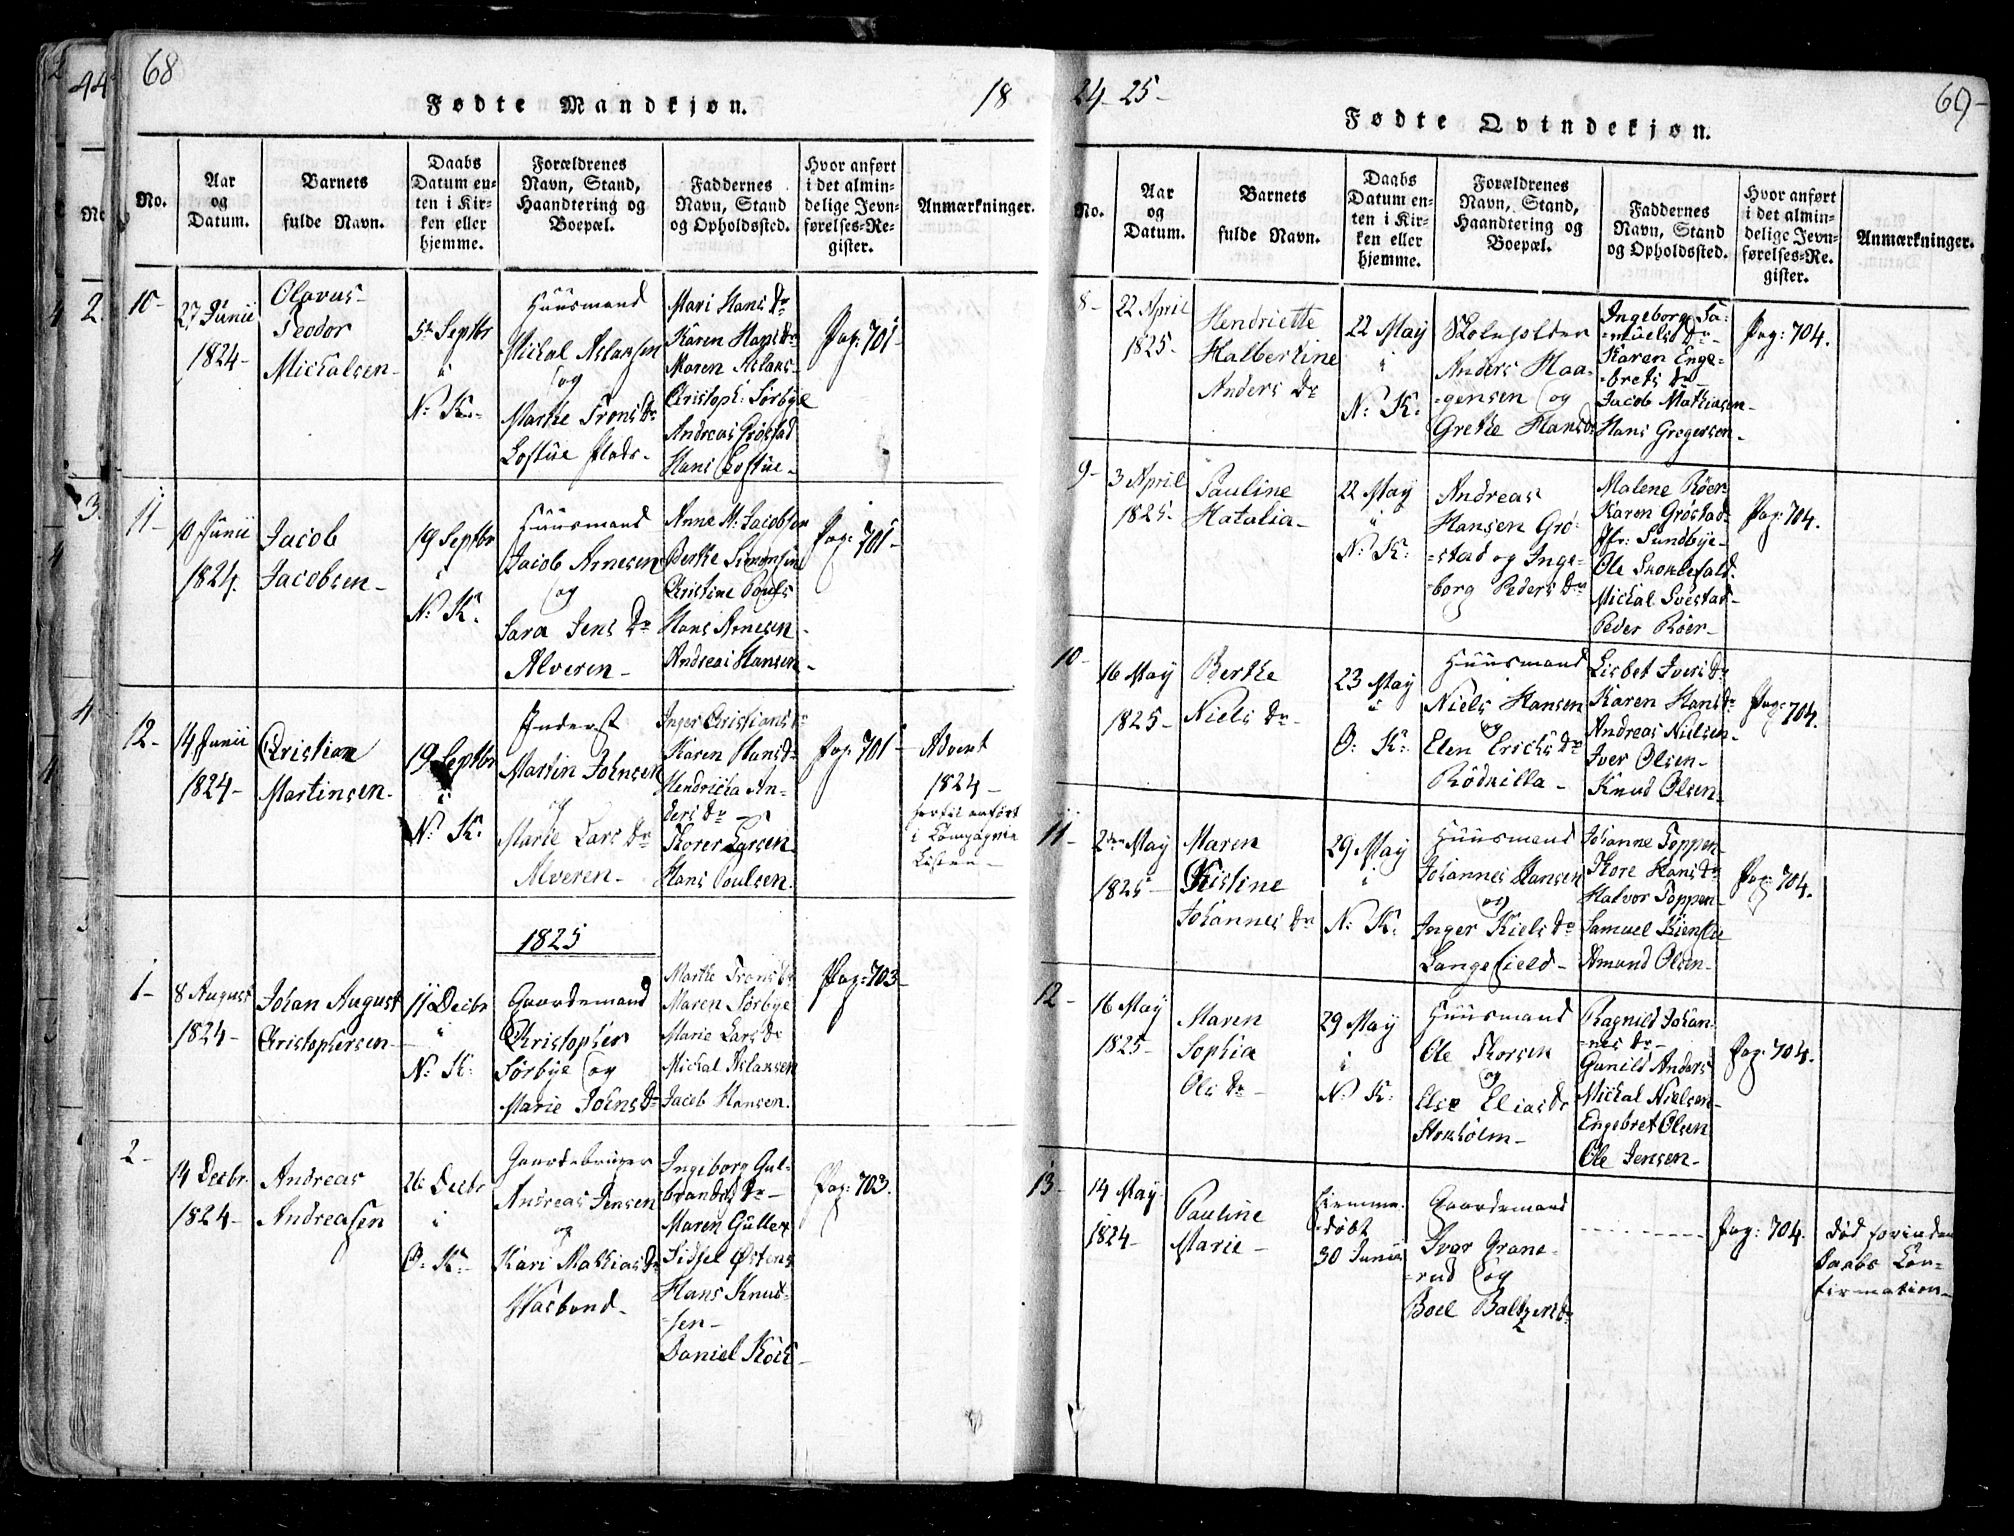 68
Fødte Mandkjøn.
18
No.
Aar og Datum.
Barnets fulde Navn.
Daabs Datum enten i Kirken eller hjemme.
Forældrenes Navn, Stand, Haandtering og Boepæl.
Faddernes Navn, Stand og Opholdssted.
Hvor anført i det almindelige Jevnførelses-Register.
Anmærkninger.
10-
27 Junii
1824-
Olavus-
Teodor
Michalsen-
5te Septbr
i
N: K:-
Huusmand
Michal Aslaksen
og
Marthe Tronsdr
Loftue Plads-
Mari Hansdr
Karen Hansdr
Maren Aslaks-
Christoph: Sørbye
Andreas Grøstad
Hans Loftue-
Pag: 701-
11-
10 Junii
1824.
Jacob
Jacobsen-
19 Septbr
i
N: K.
Huusmand
Jacob Arnesen
og
Sara Jensdr
Alveren-
Anne M: Jacobsen
Berthe Simonsen
Christine Pouls
Hans Arnesen-
Andreas Hansen-
Pag: 701-
12-
14 Junii
1824-
Christian
Martinsen-
19 Septbr
i
N: K:
Inderst
Martin Johnsen
og
Marie Larsdr
Alveren-
Inger Christiansdr
Karen Hansdr
Hendricka An-
dersdr-
Thorer Larsen-
Hans Poulsen.
Pag: 701-
Advert
1824-
hertil anført
i Compagnie
Listen-
1825
1-
8 August
1824-
Johan August
Christophersen-
11 Decbr
i
N: K:
Gaardemand
Christopher
Sørbye og
Marie Johnsdr
Marthe Tronsdr
Maren Sørbye
Marie Larsdr
Michal Aslaksen
Jacob Hansen.
Pag: 703-
2-
14 Decbr.
1824-
Andreas
Andreasen
26 Decbr
i
O: K:-
Gaardebruger
Andreas Jensen
og
Kari Mathiasdr
Wasbond-
Ingeborg Gul-
brandsdr-
Maren Guller
Sidsel Østens
Hans Knud-
=sen-
Daniel Koch-
Pag: 703.
24-25-
69-
Fødte Qvindekjøn.
No.
Aar og Datum.
Barnets fulde Navn.
Daabs Datum enten i Kirken eller hjemme.
Forældrenes Navn, Stand, Haandtering og Boepæl.
Faddernes Navn, Stand og Opholdssted.
Hvor anført i det almindelige Jevnførelses-Register.
Anmærkninger.
8-
22 April
1825-
Hendriette
Halbertine
Andersdr
22 May
i
N: K:
Skoleholder
Anders Haa-
=gensen og
Grethe Hansdr
Ingeborg Sa-
=muelsdr-
Karen Enge-
=bretsdr-
Jacob Mathiasen-
Hans Gregersen-
Pag: 704.
9-
3 April
1825.
Pauline
Natalia-
22 May
i
N: K:
Andreas
Hansen Grø-
=stad og Inge-
=borg Pedersdr
Malene Røer-
Karen Grøstad-
Ole Skokefald.
Michal Svestad-
Peder Røer-
Pag: 704.
10-
16 May
1825-
Berthe
Nielsdr-
23 May
i
O: K:
Huusmand
Niels Hansen
og
Elen Erichsdr
Rødkilla-
Lisbet Iversdr
Karen Hansdr
Andreas Nielsen-
Iver Olsen-
Knud Olsen-
Pag: 704.
11-
2den May
1825-
Maren
Kistine
Johannesdr
29 May
i
N: K:
Huusmand
Johannes Hansen
og
Inger Nielsdr
Langefield-
Johanne Toppen-
Thore Hansdr
Halvor Toppen-
Samuel Kienslie
Amund Olsen-
Pag: 704.
12-
16 May
1825-
Maren
Sophia
Olsdr-
29 May
i
N: K:
Huusmand
Ole Thorsen
og
Else Eliasdr
Stokholm-
Ragnild Johan-
=nesdr-
Gunild Anders
Michal Nielsen-
Engebret Olsen
Ole Jensen-
Pag: 704.
13-
14 May
1824-
Pauline
Marie-
Hjemme-
døbt
30 Junii
Gaardemand
Ivar Grane-
=rud og
Boel Baltzersdr
Pag: 704.
Død forinden
Daabs Con-
firmation-